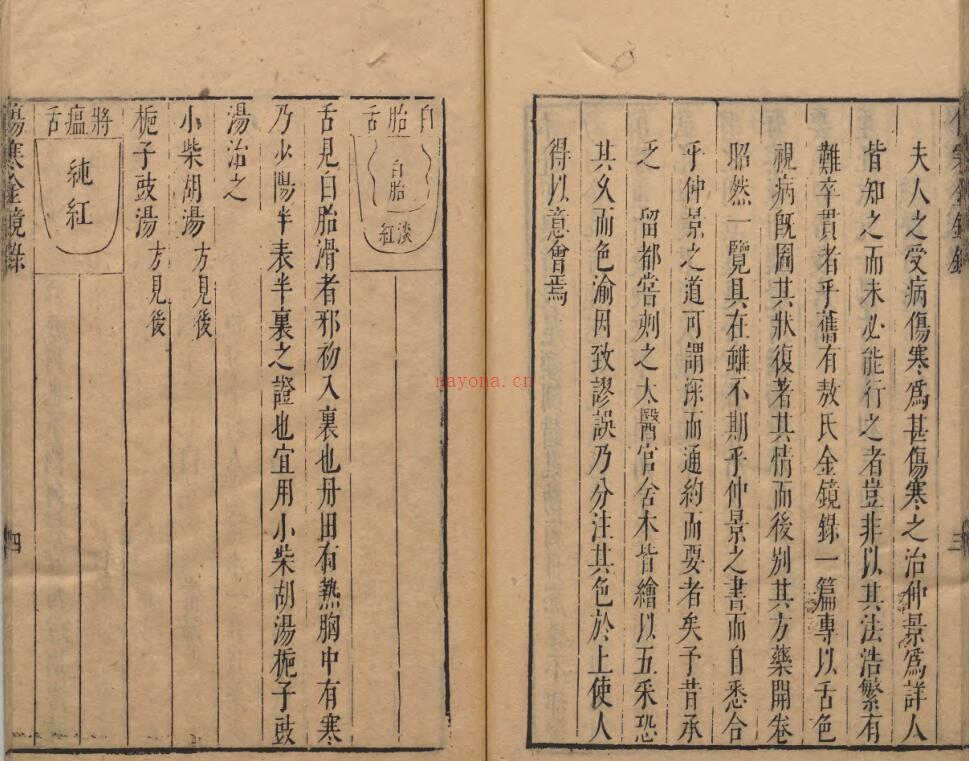 夫人之受病傷寒爲甚傷寒之治仲景爲詳人
皆知之而未必能行之者豈非以其法浩繁有
難卒貫者乎舊有敖氏金鏡錄一篇專以舌色
視病既圖其狀復著其情而後别其方藥開卷
昭然一覽具在雖不期乎仲景之書而自悉合
乎仲景之道可謂深而通約而要者矣予昔承
乏 留都嘗刻之太醫官舍本皆繪以五采恐
其久而色渝因致謬誤乃分注其色於上使人
得以意會焉
三
白胎舌
白胎
淡紅
舌見白胎滑者邪初入裏也丹田有熱胸中有寒
乃少陽半表半裏之證也宜用小柴胡湯梔子豉
湯治之
小柴胡湯 方見後
梔子豉湯 方見後
將瘟舌
純紅
傷寒金鏡錄
四
nayona.cn